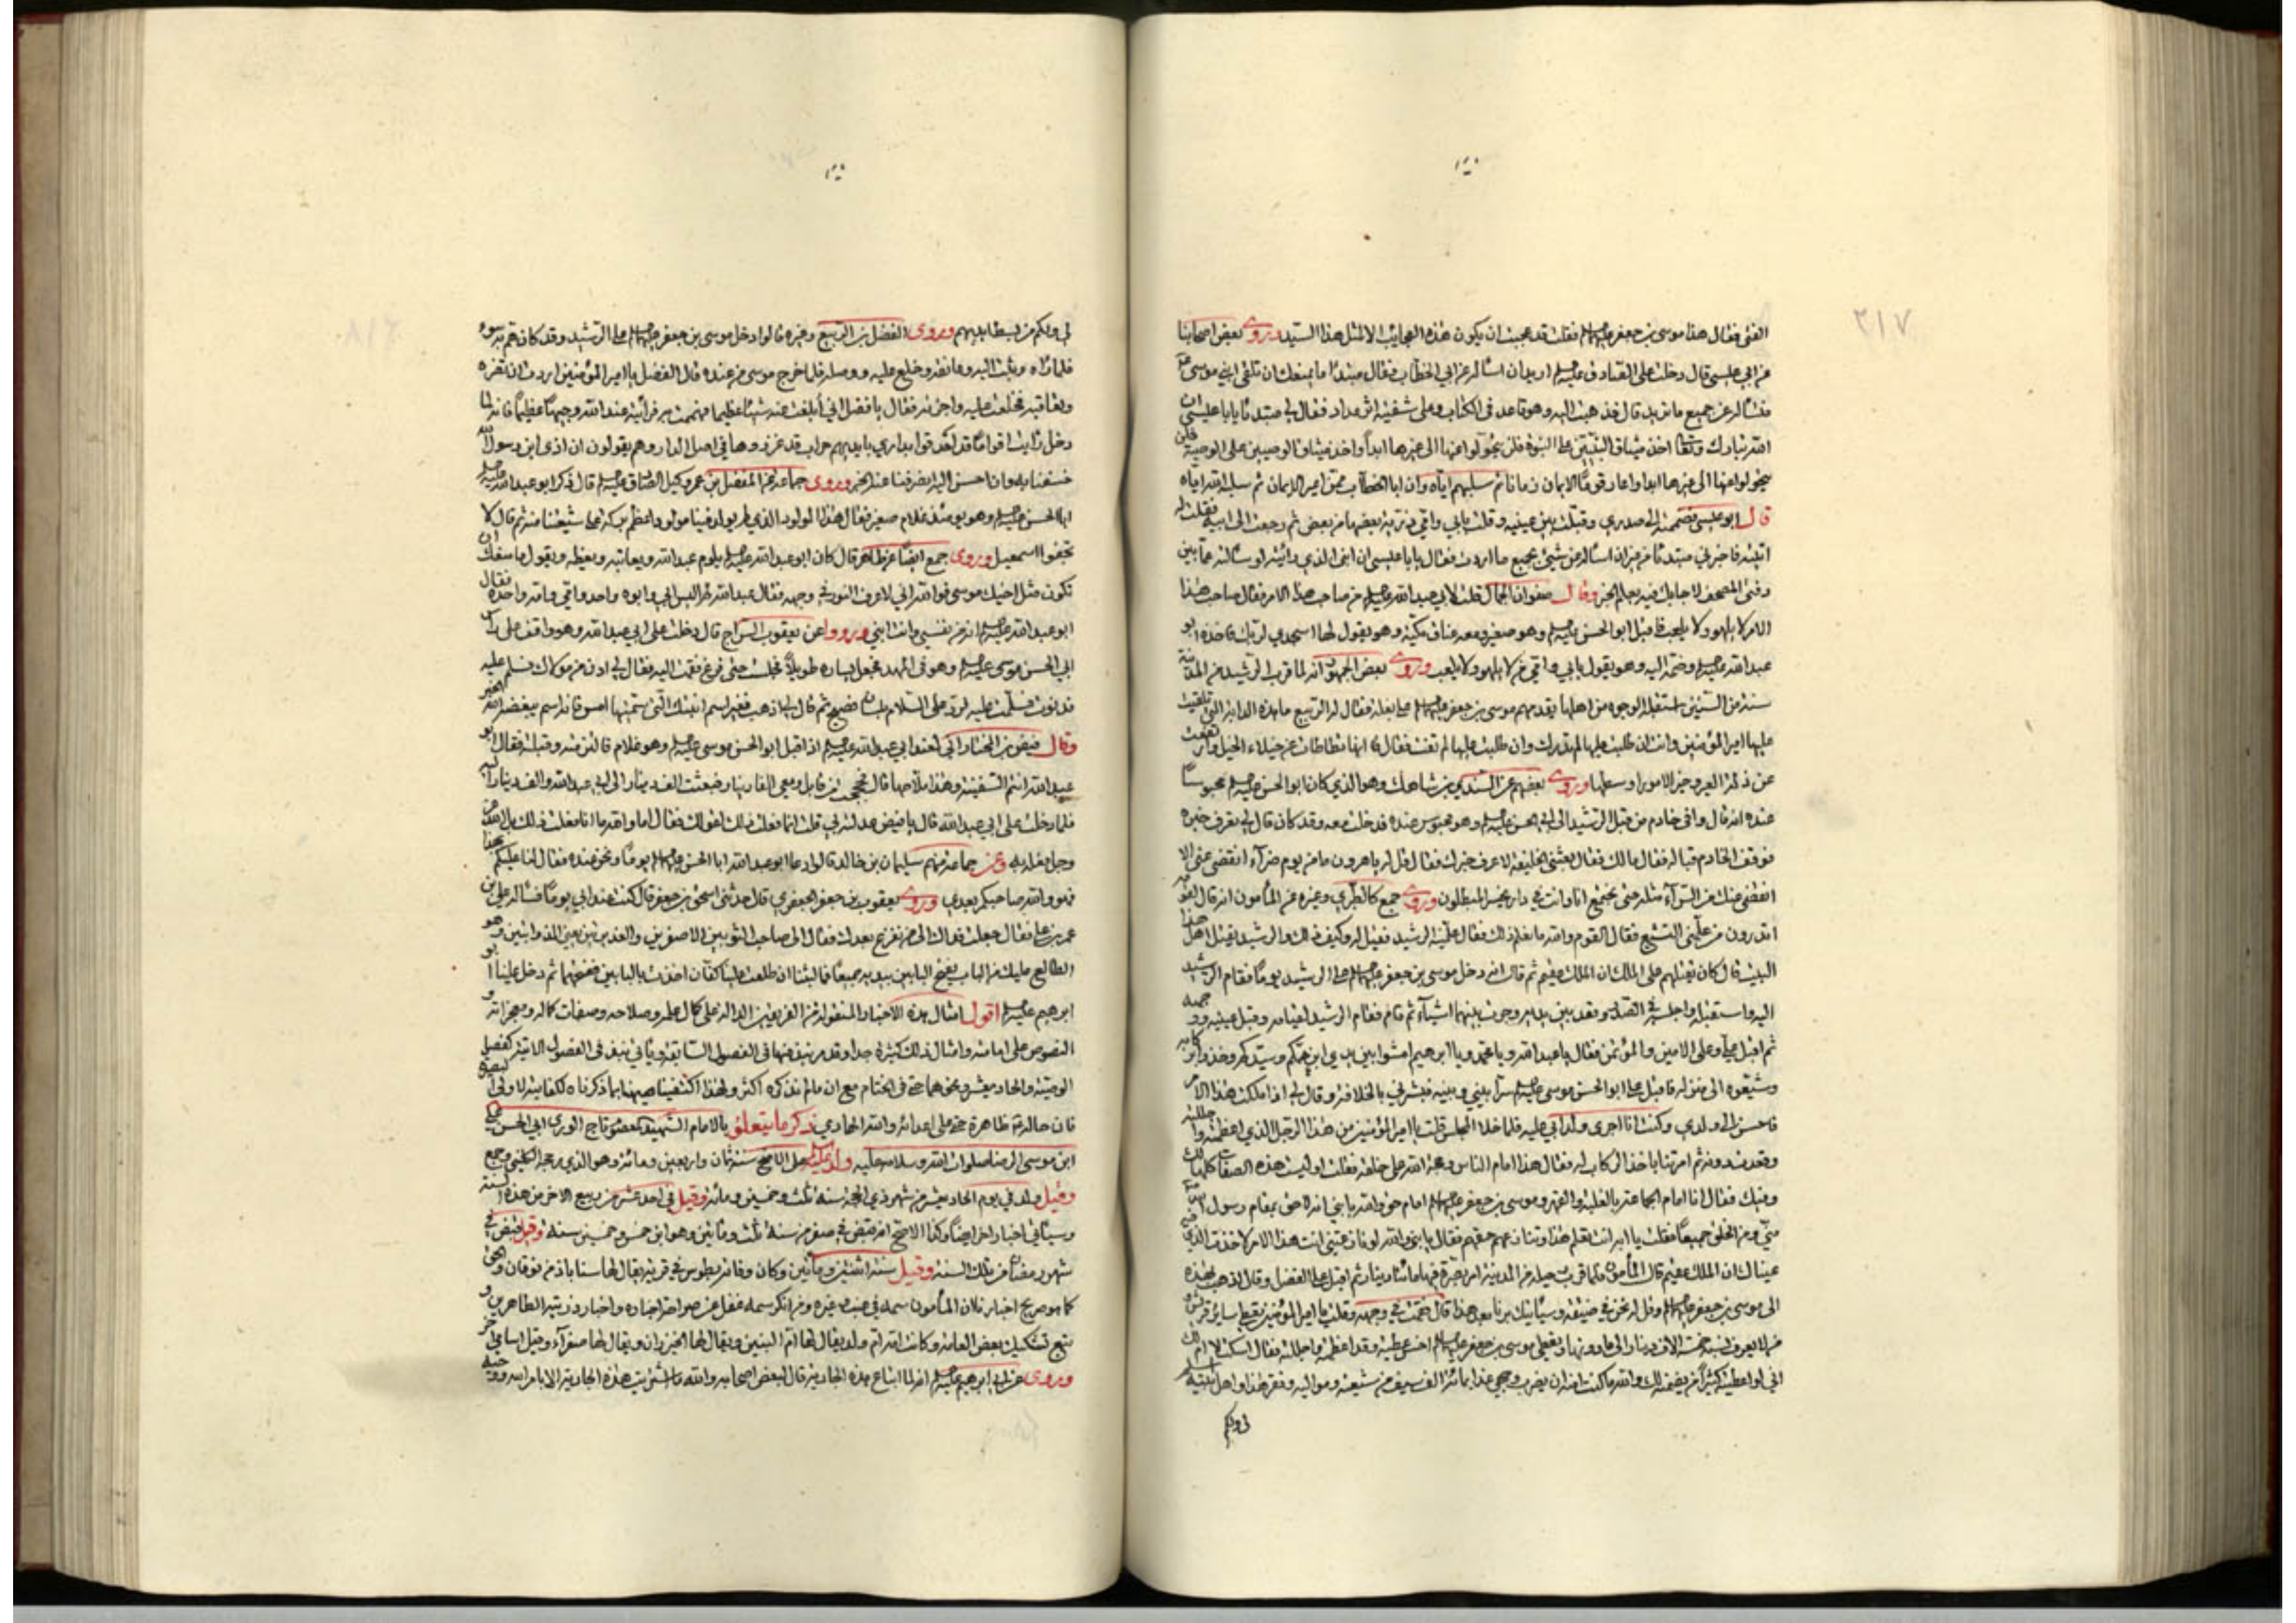 ٢١٧
الفتى فقال هذا موسى بن جعفر عليهما السلام فقلت قد عجبت ان يكون هذه العجايب الا لمثل هذا السيد وروى بعض اصحابنا
عن ابي عيسى قال دخلت على الصادق عليه السلام اريد ان اساله عن ابي الخطاب فقال مبتدئا ما يمنعك ان تلقى ابني موسى
فتساله عن جميع ما تريد قال فذهبت اليه وهو قاعد في الكتاب وعلى شفتيه اثر مداد فقال لي مبتدئا يا با عيسى ان
الله تبارك وتعالى اخذ ميثاق النبيين على النبوة فلن يتحولوا عنها الى غيرها ابدا واخذ ميثاق الوصيين على الوصية فلن
يتحولوا عنها الى غيرها ابدا واعار قوما الايمان زمانا ثم سلبهم اياه وان ابا الخطاب ممن اعير الايمان ثم سلبه الله اياه
قال ابو عيسى فضممته الى صدري وقبلت بين عينيه وقلت بابي وامي ذرية بعضها من بعض ثم رجعت الى ابيه فقلت له
اتيته فاخبرني مبتدئا من غير ان اساله عن شيء بجميع ما اردت فقال يا با عيسى ان ابني الذي رايته لو سالته عما بين
دفتي المصحف لاجابك فيه بعلم الخبر وقال صفوان الجمال قلت لابي عبد الله عليه السلام من صاحب هذا الامر فقال صاحب هذا
الامر لا يلهو ولا يلعب فاقبل ابو الحسن عليه السلام وهو صغير ومعه عناق مكية وهو يقول لها اسجدي لربك فاخذه ابو
عبد الله عليه السلام وضمه اليه وهو يقول بابي وامي من لا يلهو ولا يلعب وروى بعض الجمهور انه لما قرب الرشيد من المدينة
سنة من السنين استقبله الوجوه من اهلها يقدمهم موسى بن جعفر عليهما السلام على بغلة فقال له الربيع ما هذه الدابة التي تلقيت
عليها امير المؤمنين وانت ان طلبت عليها لم تدرك وان طلبت عليها لم تفت فقال انها تطاطات عن خيلاء الخيل وارتفعت
عن ذلة العير وخير الامور اوسطها وروى بعضهم عن السندي بن شاهك وهو الذي كان ابو الحسن عليه السلام محبوسا
عنده انه قال وافى خادم من قبل الرشيد الى ابي الحسن عليه السلام وهو محبوس عنده فدخلت معه وقد كان قال لي تعرف خبره
فوقف الخادم قباله فقال مالك فقال بعثني الخليفة لاعرف خبرك فقال قل له يا هرون ما من يوم ضراء انقضى عني الا
انقضى عنك من السراء مثله حتى نجتمع انا وانت في دار يخسر المبطلون وروى جمع كالطبري وغيره عن المأمون انه قال لقوم
اتدرون من علمني التشيع فقال القوم والله ما نعلم ذلك فقال علمنيه الرشيد فقيل له وكيف ذلك والرشيد يقتل اهل هذا
البيت قال كان يقتلهم على الملك لان الملك عقيم ثم قال انه دخل موسى بن جعفر عليهما السلام على الرشيد يوما فقام الرشيد
اليه واستقبله واجلسه في الصدر وقعد بين يديه وجرت بينهما اشياء ثم قام فقام الرشيد لقيامه وقبل عينيه ووجهه
ثم اقبل علي وعلى الامين والمؤتمن فقال يا عبد الله ويا محمد ويا ابرهيم امشوا بين يدي ابن عمكم وسيدكم وخذوا ركابه
وشيعوه الى منزله فاقبل علي ابو الحسن موسى عليه السلام سرا بيني وبينه فبشرني بالخلافة وقال لي اذا ملكت هذا الامر
فاحسن الى ولدي وكنت انا اجرى ولد ابي عليه فلما خلا المجلس قلت يا امير المؤمنين من هذا الرجل الذي اعظمته واجللته
وقعدت دونه ثم امرتنا باخذ الركاب له فقال هذا امام الناس وحجة الله على خلقه فقلت او ليست هذه الصفات كلها لك
وفيك فقال انا امام الجماعة بالغلبة والقهر وموسى بن جعفر عليهما السلام امام حق والله يا بني انه لاحق بمقام رسول الله
مني ومن الخلق جميعا
عيناك لان الملك عقيم قال المأمون
الى موسى بن جعفر عليهما السلام وقل له نحن في ضيقة وسيأتيك برنا بعد هذا قال فقمت في وجهه وقلت يا امير المؤمنين تعطي ساير قريش
من لا يعرف نسبه خمسة الاف دينار الى ما دونها وتعطي موسى بن جعفر عليهما السلام اخس عطية وقد اعظمته واجللته فقال اسكت لا ام لك
اني لو اعطيته كثيرا لم يضمنه لك والله ما كنت امنه ان يضرب وجهي غدا بمائة الف سيف من شيعته ومواليه وفقر هذا واهل بيته اسلم
لي ولكم
لي ولكم من بسط ايديهم وروى الفضل بن الربيع وغيره قالوا دخل موسى بن جعفر عليهما السلام على الرشيد وقد كان هم به سوء
فلما راه وثب اليه وعانقه وخلع عليه ووصله فلما خرج موسى من عنده قال الفضل يا امير المؤمنين اردت ان تضربه
وتعاقبه فخلعت عليه واجزته فقال يا فضل اني ابلغت عنه شيئا عظيما فهممت به فرأيته عند الله وجيها عظيما فانه لما
دخل رايت اقواما قد احدقوا بداري بايديهم حراب قد غرزوها في اصل الدار وهم يقولون ان اذى ابن رسول الله
خسفنا به وان احسن اليه انصرفنا عنه الخبر وروى جماعة عن المفضل بن عمر وكيل الصادق عليه السلام قال ذكر ابو عبد الله عليه السلام
ابا الحسن عليه السلام وهو يومئذ غلام صغير فقال هذا المولود الذي لم يولد فينا مولود اعظم بركة على شيعتنا منه ثم قال لا
تجفوا اسمعيل وروى جمع ايضا عن طاهر قال كان ابو عبد الله عليه السلام يلوم عبد الله ويعاتبه ويعظه ويقول ما منعك ان
تكون مثل اخيك موسى فوالله اني لاعرف النور في وجهه فقال عبد الله لم اليس ابي وابوه واحد وامي وامه واحدة فقال
ابو عبد الله عليه السلام انه من نفسي وانت ابني ورووا عن يعقوب السراج قال دخلت على ابي عبد الله وهو واقف على راس
ابي الحسن موسى عليه السلام وهو في المهد فجعل يساره طويلا فجلست حتى فرغ فقمت اليه فقال لي ادن من مولاك فسلم عليه
فدنوت فسلمت عليه فرد علي السلام بلسان فصيح ثم قال لي اذهب فغير اسم ابنتك التي سميتها امس فانه اسم يبغضه الله الخبر
وقال فيض بن المختار اني لعند ابي عبد الله عليه السلام اذ اقبل ابو الحسن موسى عليه السلام وهو غلام فالتزمته وقبلته فقال ابو
عبد الله انتم السفينة وهذا ملاحها قال فحججت من قابل ومعي الفا دينار فبعثت الف دينار الى ابي عبد الله والف دينار اليه
فلما دخلت على ابي عبد الله قال يا فيض عدلته بي قلت انما فعلت ذلك لقولك فقال اما والله ما انا فعلت ذلك بل الله عز
وجل فعله به وعن جماعة منهم سليمان بن خالد قالوا دعا ابو عبد الله ابا الحسن عليهما السلام يوما ونحن عنده فقال لنا عليكم بهذا
فهو والله صاحبكم بعدي وروى يعقوب بن جعفر الجعفري قال حدثني اسحق بن جعفر قال كنت عند ابي يوما فساله علي بن
عمر بن علي فقال جعلت فداك الى من نفزع بعدك فقال الى صاحب الثوبين الاصفرين والغديرتين يعني الذوابتين وهو
الطالع عليك من الباب يفتح البابين بيديه جميعا فما لبثنا ان طلعت علينا كفان اخذت بالبابين ففتحهما ثم دخل علينا ابو
ابرهيم عليه السلام اقول امثال هذه الاخبار المنقولة من الفريقين الدالة على كمال علمه وصلاحه وصفات كماله ومعجزاته و
النصوص على امامته وامثال ذلك كثيرة جدا وقد مر نبذ منها في الفصول السابقة ويأتي نبذ في الفصول الاتية كفصل
الوصية والحادي عشر ونحوهما حتى في الختام مع ان ما لم نذكره اكثر ولهذا اكتفينا هيهنا بما ذكرناه لكفايته لاولى البصيرة
فان حاله ظاهرة حتى على اعدائه والله الهادي ذكر ما يتعلق بالامام الشهيد المعصوم تاج الورى ابي الحسن علي
ابن موسى الرضا صلوات الله وسلامه عليه ولد عليه السلام على الاصح سنة ثمان واربعين ومائة وهو الذي رجحه الكليني وجمع
وقيل ولد في يوم الحادي عشر من شهر ذي الحجة سنة ثلث وخمسين ومائة وقيل في احد عشر من ربيع الاخر من هذه السنة
وسيأتي اخبار اخر ايضا وكذا الاصح انه قبض في صفر من سنة ثلث ومأتين وهو ابن خمس وخمسين سنة وقيل قبض في
شهر رمضان من تلك السنة وقيل سنة اثنتين ومأتين وكان وفاته بطوس في قرية يقال لها سناباذ من نوقان والحق
كما هو صريح اخبار ثلث ان المأمون سمه في عنب وغيره ومن انكر سمه غفل عن صراحة اخباره واخبار ذريته الطاهرين و
تبع تشكيك بعض العامة وكانت امه ام ولد يقال لها ام البنين ويقال لها الخيزران ويقال لها صفراء وقيل اسامي اخر
وروى عن ابي ابرهيم عليه السلام انه لما ابتاع هذه الجارية قال لبعض اصحابه والله ما اشتريت هذه الجارية الا بامر الله ووحيه